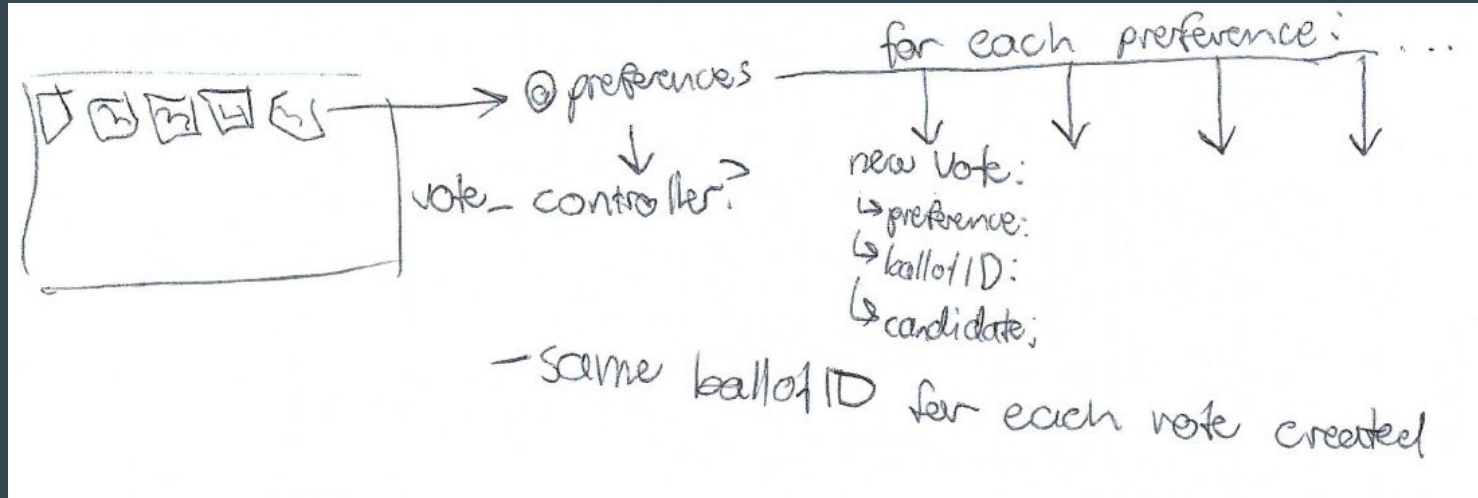 for each preference: ...
1 2 3 4 5
@preferences
vote_controller?
new Vote:
↳preference:
↳ballotID:
↳candidate:
-same ballotID for each vote created